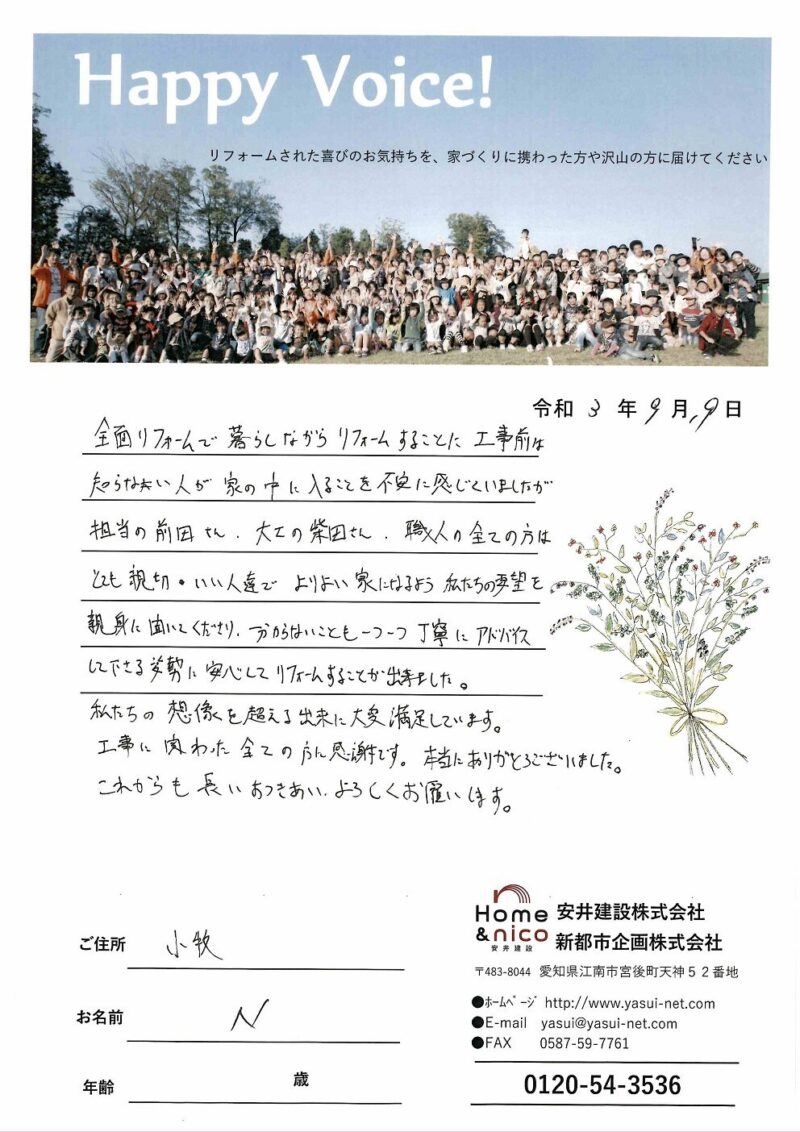 Happy Voice!
リフォームされた喜びのお気持ちを、家づくりに携わった方や沢山の方に届けてください
令和 3 年 9 月 9 日
全面リフォームで 暮らしながら リフォームすることに 工事前は
知らない人が 家の中に 入ることを 不安に感じていましたが
担当の前田さん、大工の柴田さん、職人の全ての方は
とても 親切・いい人達で よりよい 家になるよう 私たちの要望を
親身に聞いてくださり、分からないことも一つ一つ 丁寧に アドバイス
して下さる姿勢に 安心して リフォームすることが 出来ました。
私たちの 想像を超える出来に大変満足しています。
工事に 関わった 全ての方に感謝です。本当にありがとうございました。
これからも 長い おつきあい、よろしくお願いします。
ご住所 小牧
お名前 N
年齢 歳
Home
&nico
安井建設
安井建設株式会社
新都市企画株式会社
〒483-8044 愛知県江南市宮後町天神52番地
●ﾎｰﾑﾍﾟｰｼﾞ http://www.yasui-net.com
●E-mail yasui@yasui-net.com
●FAX 0587-59-7761
0120-54-3536